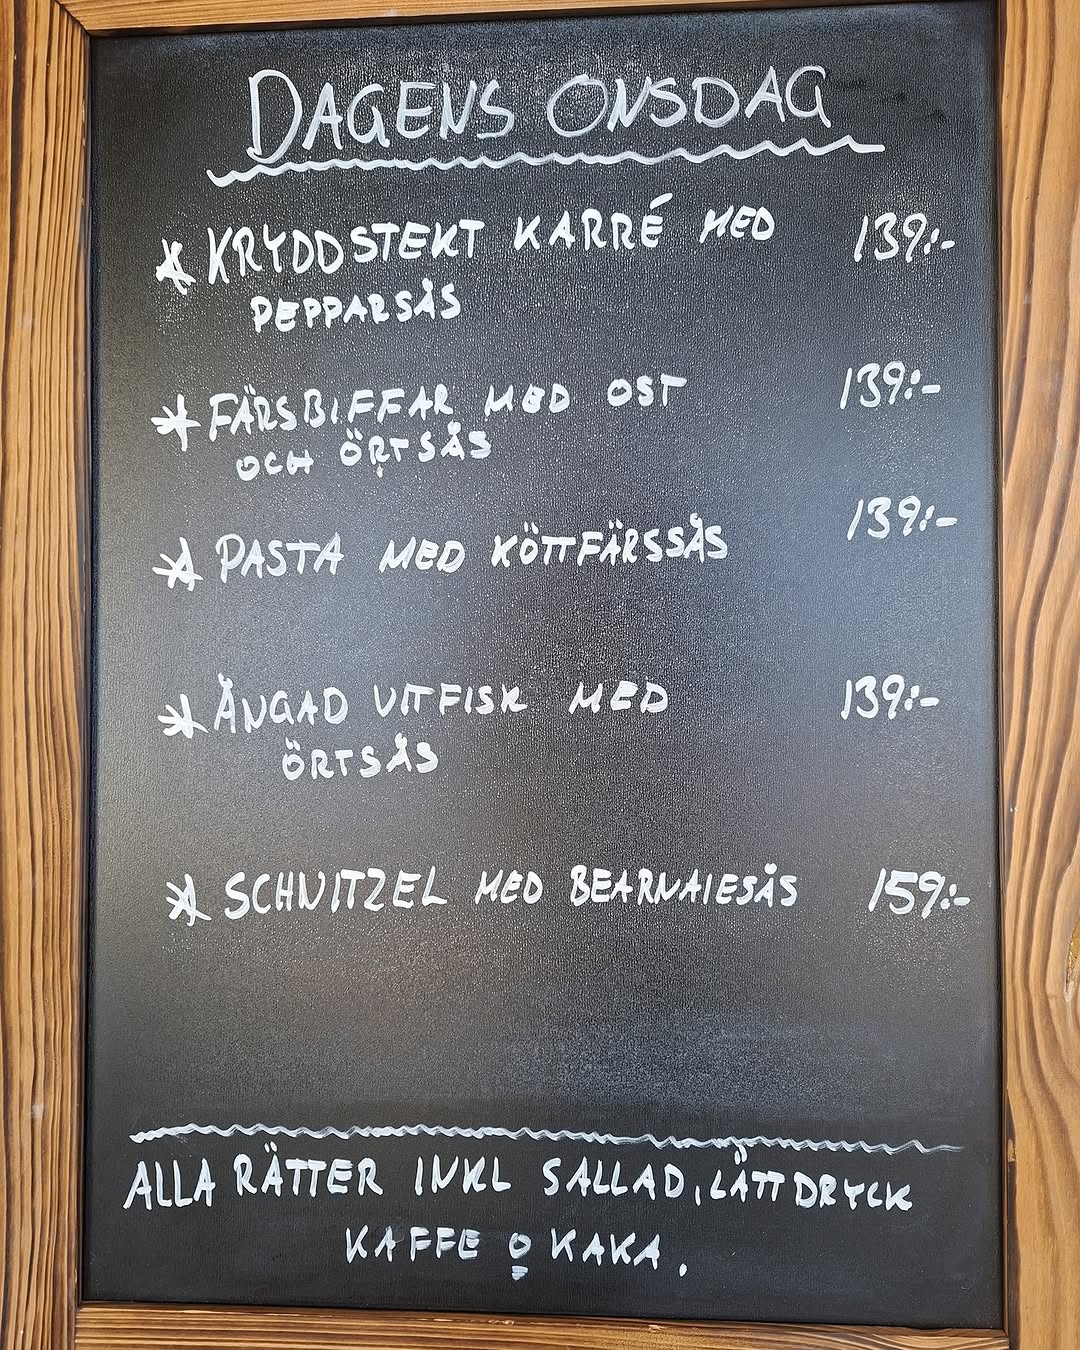 DAGENS ONSDAG
* KRYDDSTEKT KARRÉ MED 139:-
PEPPARSÅS
* FÄRSBIFFAR MED OST 139:-
OCH ÖRTSÅS
* PASTA MED KÖTTFÄRSSÅS 139:-
* ÅNGAD VITFISK MED 139:-
ÖRTSÅS
* SCHNITZEL MED BEARNAIESÅS 159:-
ALLA RÄTTER INKL SALLAD, LÄTTDRYCK
KAFFE O KAKA.